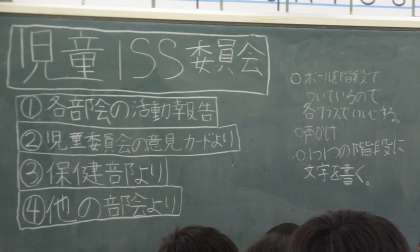 児童ISS委員会
①各部会の活動報告
②児童委員会の意見カードより
③保健部より
④他の部会より
ついているので
○声かけ
○1つ1つの階段に
文字を書く。